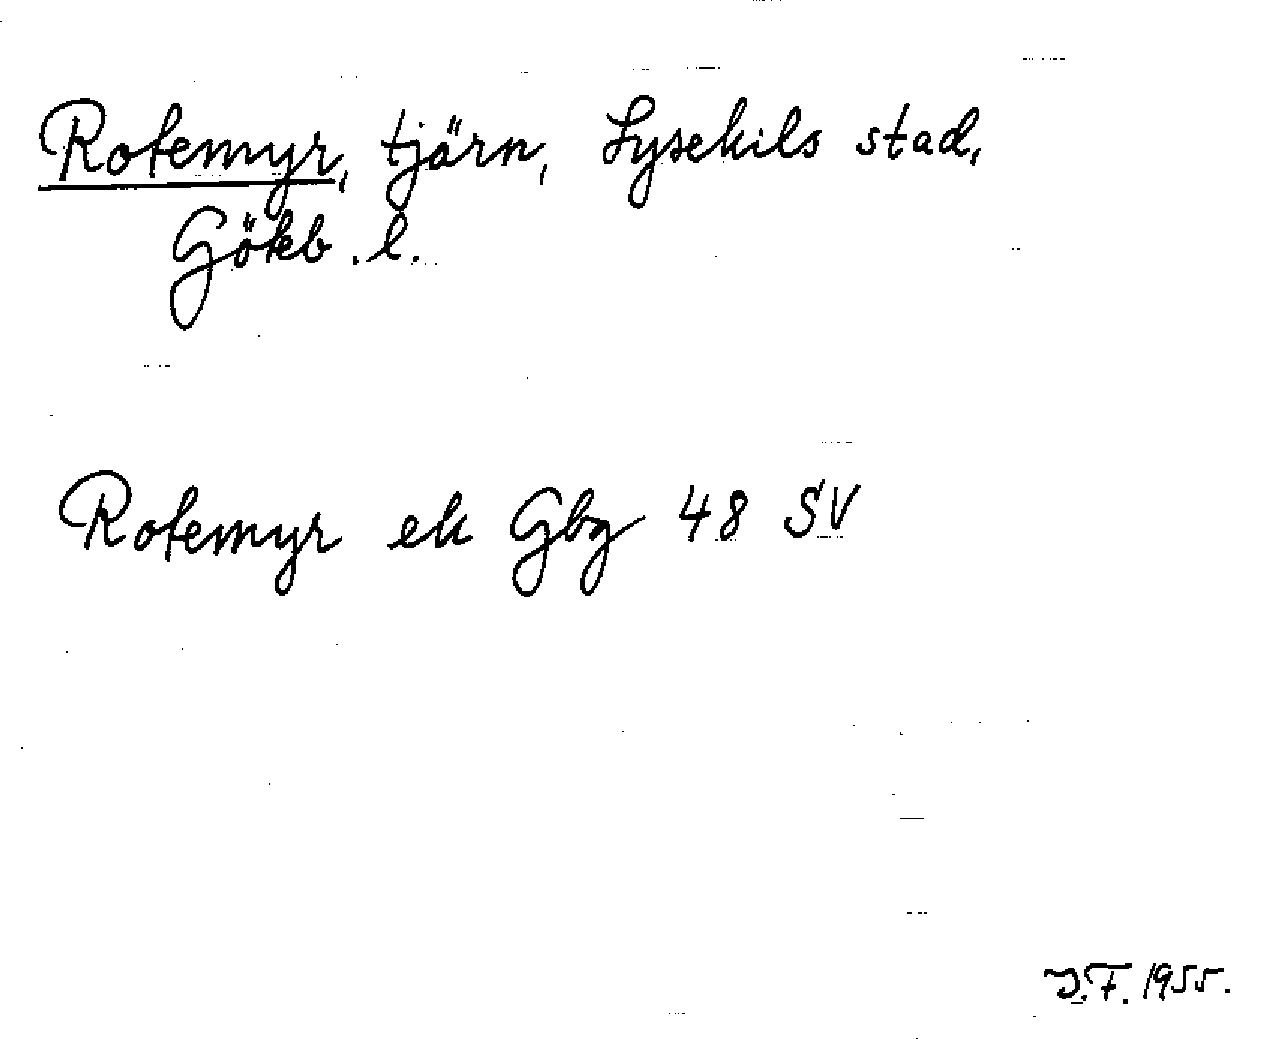 Rotemyr, tjärn, Lysekils stad,
Göteb. l.
Rotemyr ek Gbg 48 SV
J.F. 1955.